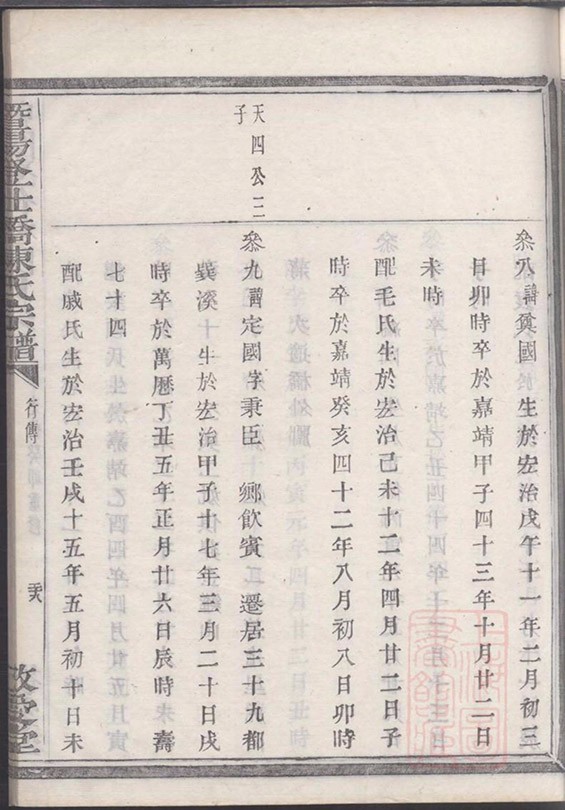 叅八諱冀國 生於宏治戊午十一年二月初三
日卯時卒於嘉靖甲子四十三年十月廿二日
未時
配毛氏生於宏治己未十二年四月廿二日子
時卒於嘉靖癸亥四十二年八月初八日卯時
天四公三
子
叅九諱定國字秉臣 鄉飲賓 遷居三十九都
巽溪 生於宏治甲子十七年三月二十日戌
時卒於萬曆丁丑五年正月廿六日辰時壽
七十四
配戚氏生於宏治壬戌十五年五月初十日未
暨陽登仕橋陳氏宗譜
行傳
敬愛堂